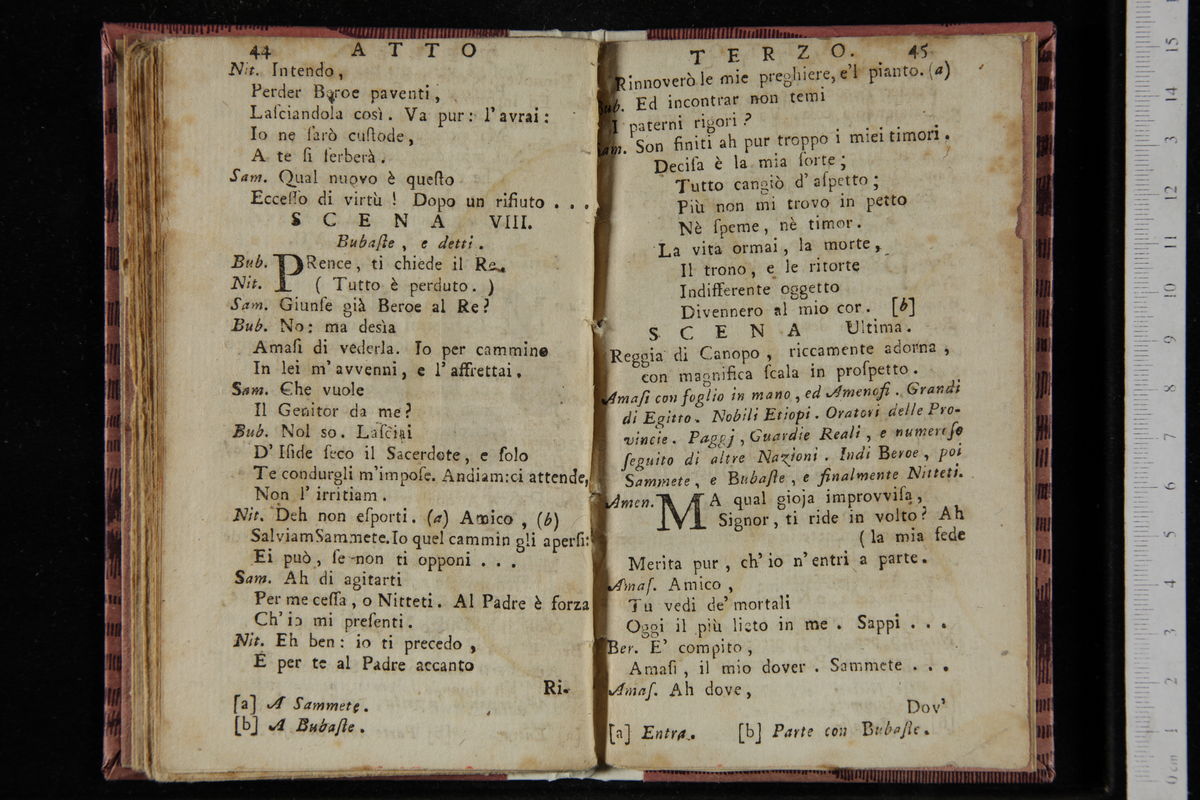 44 ATTO
Nit. Intendo,
Perder Beroe paventi,
Laſciandola così. Va pur: l'avrai:
Io ne ſarò cuſtode,
A te ſi ſerberà.
Sam. Qual nuovo è queſto
Ecceſſo di virtù! Dopo un rifiuto...
SCENA VIII.
Bubaſte, e detti.
Bub. PRence, ti chiede il Re.
Nit. (Tutto è perduto.)
Sam. Giunſe già Beroe al Re?
Bub. No: ma desìa
Amaſi di vederla. Io per cammino
In lei m'avvenni, e l'affrettai.
Sam. Che vuole
Il Genitor da me?
Bub. Nol so. Laſciai
D'Iſide ſeco il Sacerdote, e ſolo
Te condurgli m'impoſe. Andiam: ci attende,
Non l'irritiam.
Nit. Deh non eſporti. (a) Amico, (b)
Salviam Sammete. Io quel cammin gli aperſi:
Ei può, ſe non ti opponi...
Sam. Ah di agitarti
Per me ceſſa, o Nitteti. Al Padre è forza
Ch'io mi preſenti.
Nit. Eh ben: io ti precedo,
E per te al Padre accanto
Ri-
[a] A Sammete.
[b] A Bubaſte.
TERZO. 45
Rinnoverò le mie preghiere, e'l pianto. (a)
Bub. Ed incontrar non temi
I paterni rigori?
Sam. Son finiti ah pur troppo i miei timori.
Deciſa è la mia ſorte;
Tutto cangiò d'aſpetto;
Più non mi trovo in petto
Nè ſpeme, nè timor.
La vita ormai, la morte,
Il trono, e le ritorte
Indifferente oggetto
Divennero al mio cor. [b]
SCENA Ultima.
Reggia di Canopo, riccamente adorna,
con magnifica ſcala in proſpetto.
Amaſi con foglio in mano, ed Amenofi. Grandi
di Egitto. Nobili Etiopi. Oratori delle Pro-
vincie. Paggj, Guardie Reali, e numeroſo
ſeguito di altre Nazioni. Indi Beroe, poi
Sammete, e Bubaſte, e finalmente Nitteti.
Amen. MA qual gioja improvviſa,
Signor, ti ride in volto? Ah
(la mia fede
Merita pur, ch'io n'entri a parte.
Amaſ. Amico,
Tu vedi de' mortali
Oggi il più lieto in me. Sappi...
Ber. E' compito,
Amaſi, il mio dover. Sammete...
Amaſ. Ah dove,
Dov'
[a] Entra. [b] Parte con Bubaſte.
15
14
13
12
11
10
9
8
7
6
5
4
3
2
1
0 cm